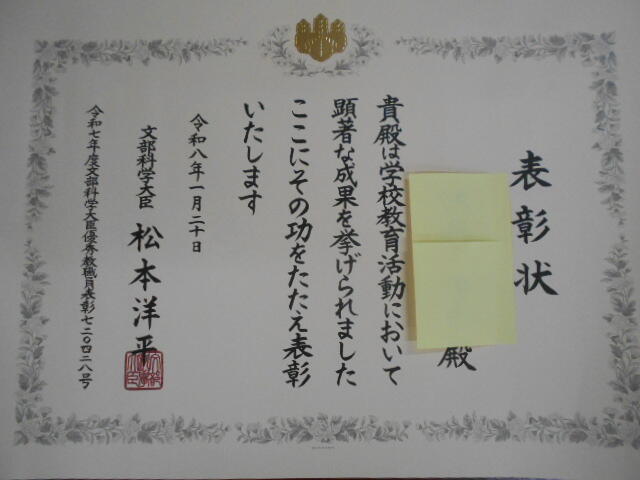 表彰状
殿
貴殿は学校教育活動において
顕著な成果を挙げられました
ここにその功をたたえ表彰
いたします
令和八年一月二十日
文部科学大臣 松本洋平
令和七年度文部科学大臣優秀教職員表彰七二〇四二八号